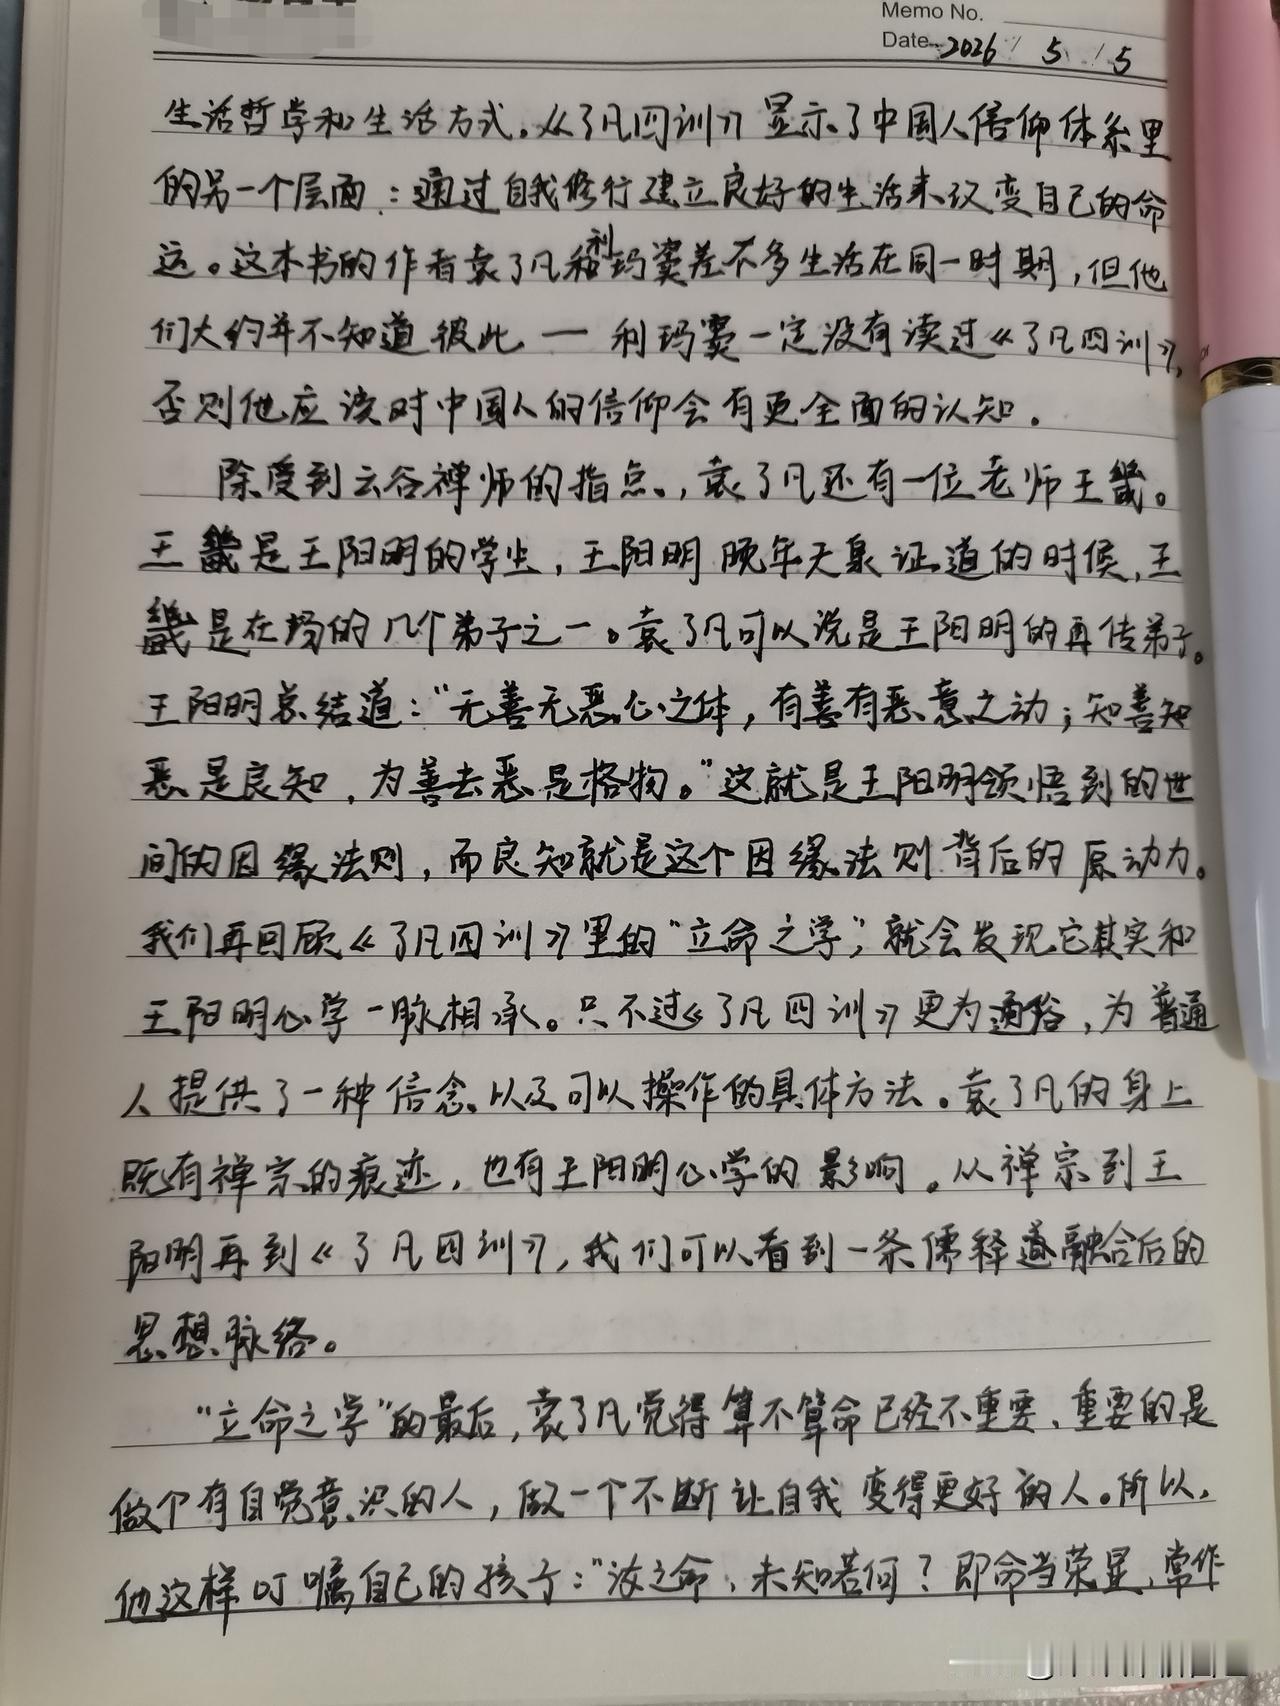 Memo No.
Date 2026 / 5 / 5
生活哲学和生活方式。从《了凡四训》显示了中国人信仰体系里
的另一个层面：通过自我修行建立良好的生活来改变自己的命
运。这本书的作者袁了凡和利玛窦差不多生活在同一时期，但他
们大约并不知道彼此 — 利玛窦一定没有读过《了凡四训》，
否则他应该对中国人的信仰会有更全面的认知。
除受到云谷禅师的指点，袁了凡还有一位老师王畿。
王畿是王阳明的学生，王阳明晚年天泉证道的时候，王
畿是在场的几个弟子之一。袁了凡可以说是王阳明的再传弟子。
王阳明总结道：“无善无恶心之体，有善有恶意之动；知善知
恶是良知，为善去恶是格物。”这就是王阳明领悟到的世
间的因缘法则，而良知就是这个因缘法则背后的原动力。
我们再回顾《了凡四训》里的“立命之学”，就会发现它其实和
王阳明心学一脉相承。只不过《了凡四训》更为通俗，为普通
人提供了一种信念、以及可以操作的具体方法。袁了凡的身上
既有禅宗的痕迹，也有王阳明心学的影响。从禅宗到王
阳明再到《了凡四训》，我们可以看到一条儒释道融合后的
思想脉络。
“立命之学”的最后，袁了凡觉得算不算命已经不重要、重要的是
做个有自觉意识的人，做一个不断让自我变得更好的人。所以，
他这样叮嘱自己的孩子：“汝之命，未知若何？即命当荣显，常作